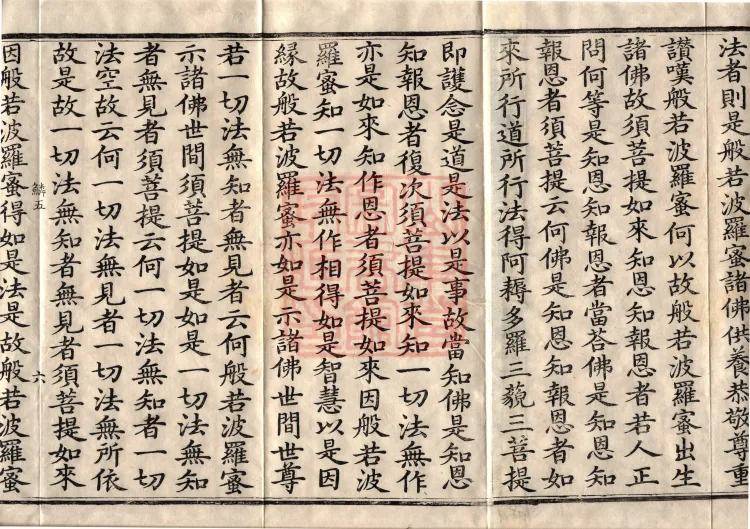 法者則是般若波羅蜜諸佛供養恭敬尊重
讃嘆般若波羅蜜何以故般若波羅蜜出生
諸佛故須菩提如來知恩知報恩者若人正
問何等是知恩知報恩者當荅佛是知恩知
報恩者須菩提云何佛是知恩知報恩者如
來所行道所行法得阿耨多羅三藐三菩提
即護念是道是法以是事故當知佛是知恩
知報恩者復次須菩提如來知一切法無作
亦是如來知作恩者須菩提如來因般若波
羅蜜知一切法無作相得如是智慧以是因
緣故般若波羅蜜亦如是示諸佛世間世尊
若一切法無知者無見者云何般若波羅蜜
示諸佛世間須菩提如是如是一切法無知
者無見者須菩提云何一切法無知者一切
法空故云何一切法無見者一切法無所依
故是故一切法無知者無見者須菩提如來
鱗五
六
因般若波羅蜜得如是法是故般若波羅蜜